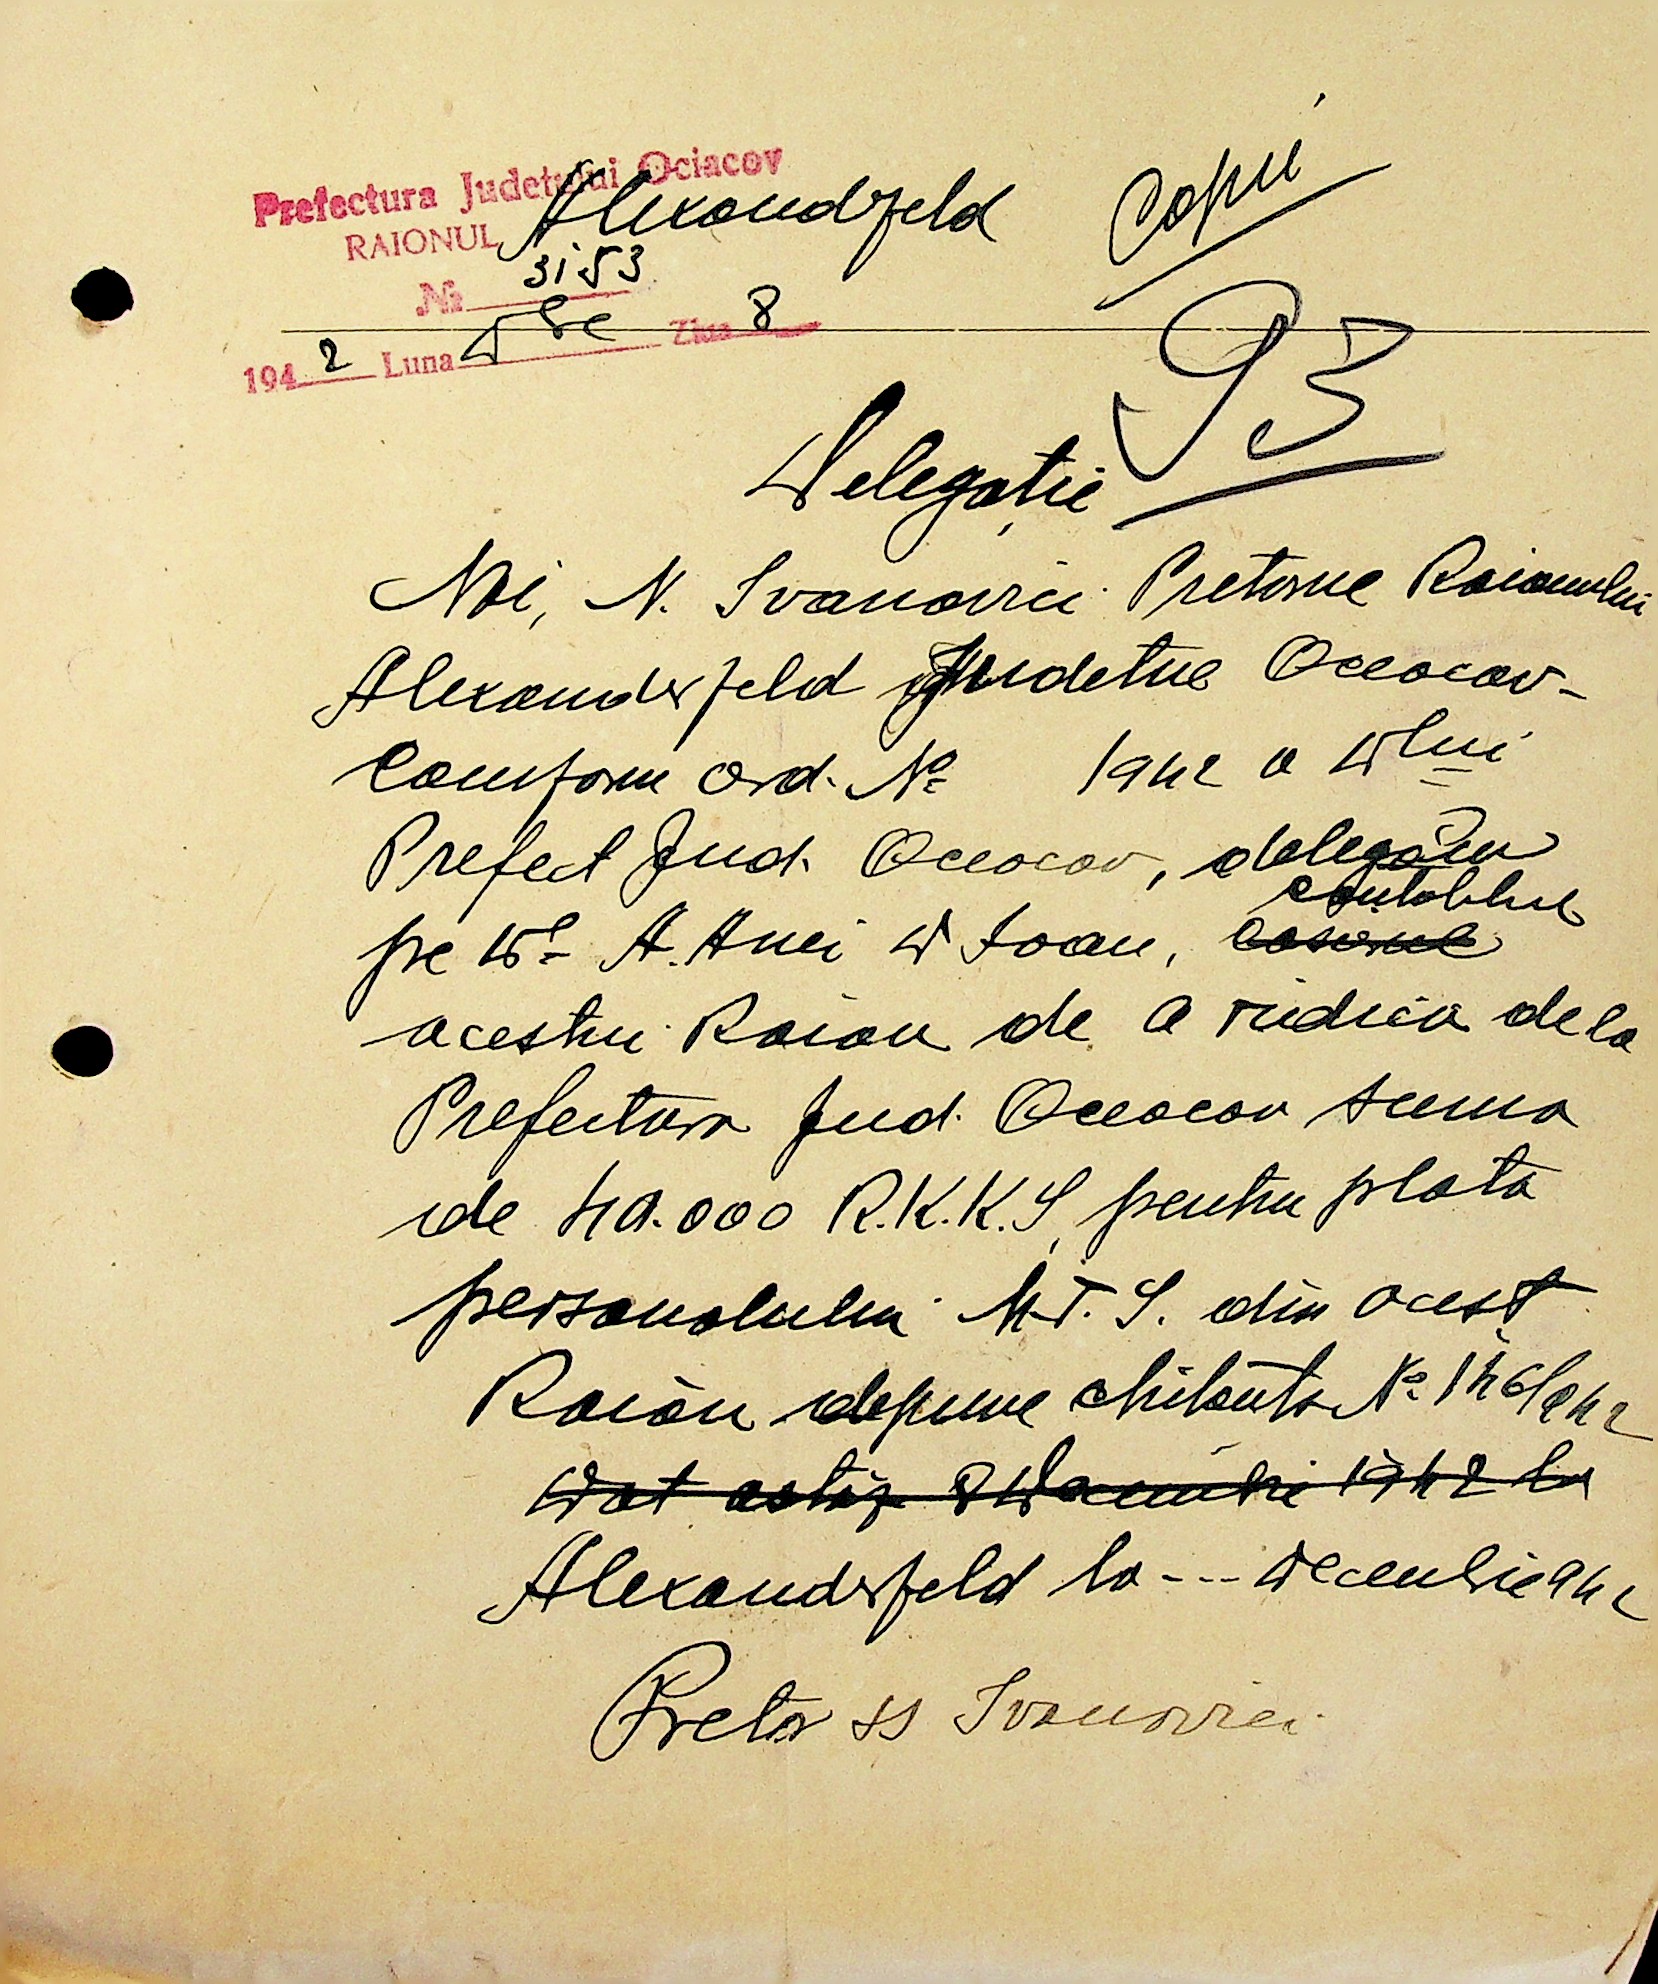 Prefectura Județului Ociacov
RAIONUL Alexandfeld
Copie
No 3153
1942 Luna Dbe Ziua 8
93
Delegație
Noi, N. Ivanovici Pretorul Raionului
Alexanderfeld Județul Oceacov-
Conform ord. No 1942 a Dlui
Prefect Jud. Oceacov, delegăm
contabilul
pe Dl A. Anei D Ioan, casierul
acestui Raion de a ridica dela
Prefectura Jud. Oceacov suma
de 40.000 R.K.K.S, pentru plata
personalului M.T.S. din acest
Raion depune chitanta No 146/942
Dat astăzi 8 Decembrie 1942 la
Alexanderfeld la --- Decembrie 942
Pretor ss Ivanovici